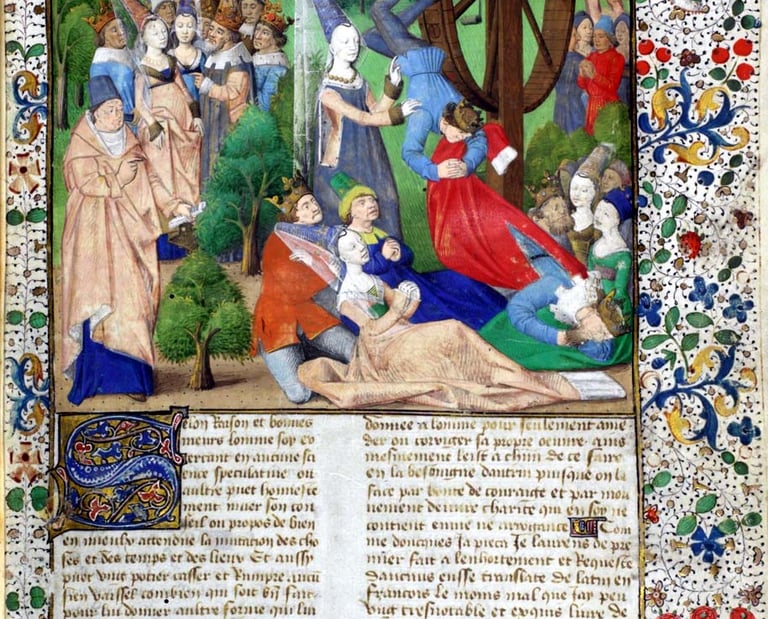 Selon Raison et bonnes
meurs lomme soy ex
ercant en aucune sci
ence speculatiue ou
aultre puet honneste
ment muer son con
seil ou propos de bien
en mieulx attendue la mutacion des cho
ses et des temps et des lieux Et aussy
puet vng potier casser et Rumpre aucu
sien vaissel combien qui soit bn fait
pour lui donner aultre forme qui lui
donnee a lomme pour seulement ame
der ou corriger sa propre oeuure ains
mesmement leist a chun de ce faire
en la besoingne dautrui puisque on la
face par bonte de couraige et par mou
uement de vraie charite qui en soy ne
contient enuie ne arrogance Com
me doncques Ja pieca Je laurens de pre
mier fait a lenhortement et Requeste
daucuns eusse translate de latin en
francois le moins mal que jay peu
vng tresnotable et exquis liure de